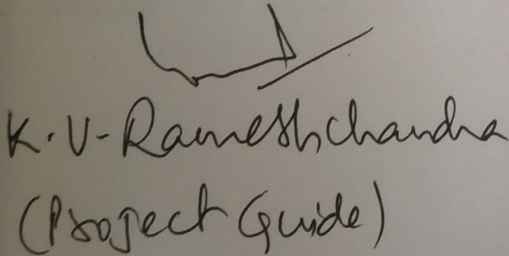 K.V-Rameshchandra
(Project Guide)